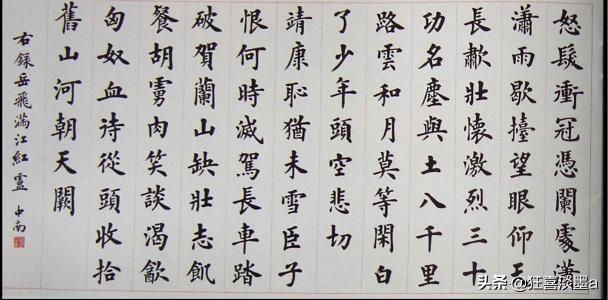 怒髮衝冠憑闌處瀟
瀟雨歇擡望眼仰天
長歗壯懷激烈三十
功名塵與土八千里
路雲和月莫等閑白
了少年頭空悲切
靖康恥猶未雪臣子
恨何時滅駕長車踏
破賀蘭山缺壯志飢
餐胡虜肉笑談渴飲
匈奴血待從頭收拾
舊山河朝天闕
右錄岳飛滿江紅 盧中南
头条 @狂喜淡墨a